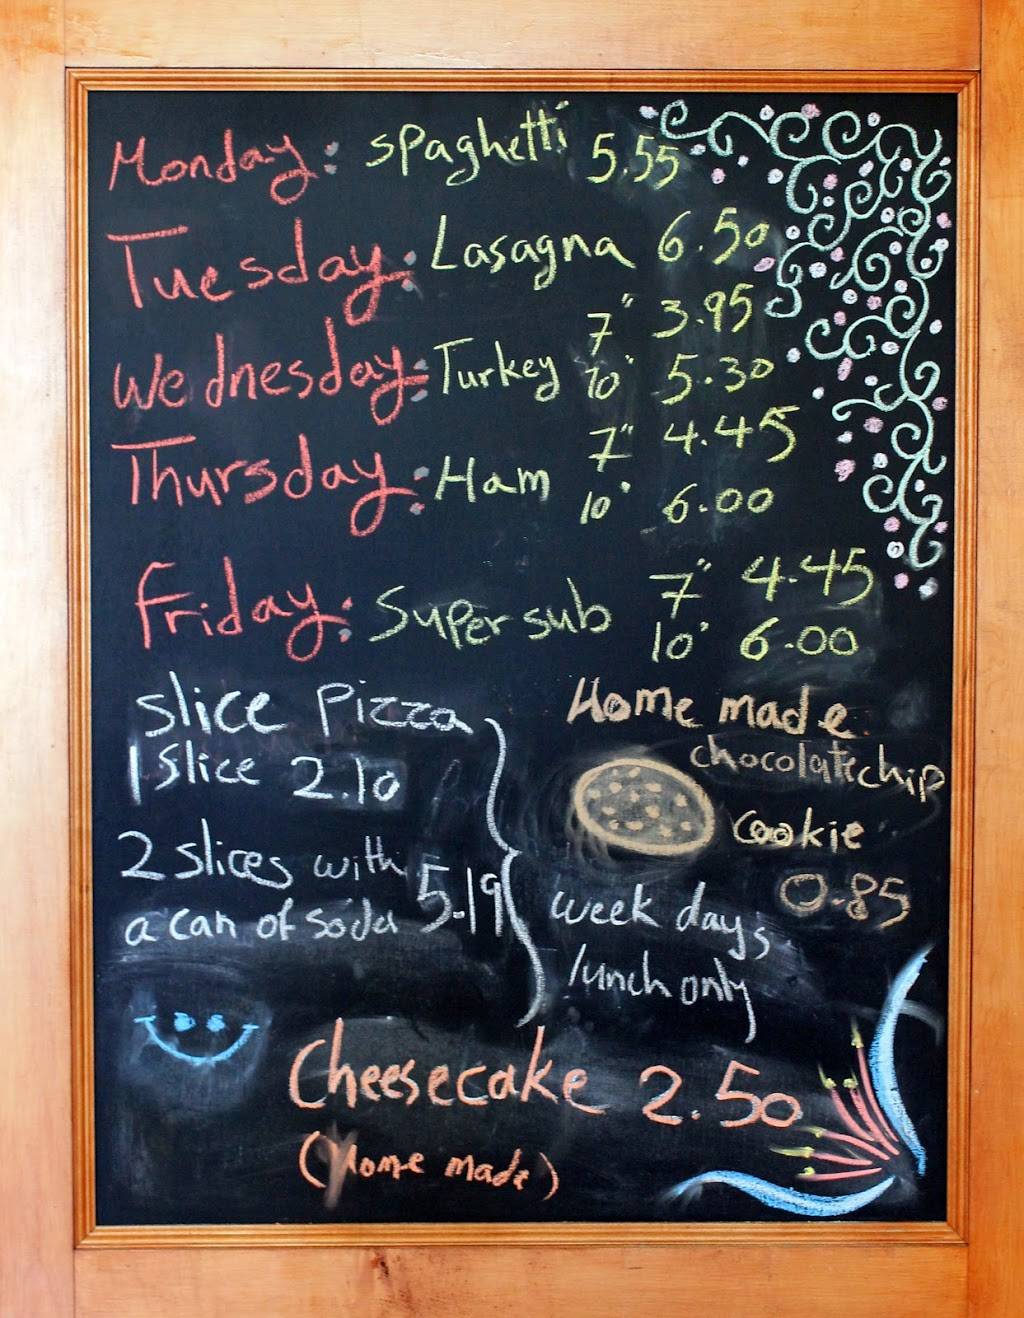 Monday: spaghetti 5.55
Tuesday: Lasagna 6.50
7" 3.95
Wednesday: Turkey 10" 5.30
7" 4.45
Thursday: Ham
10" 6.00
7" 4.45
Friday: Super sub
10" 6.00
slice Pizza
1 slice 2.10
2 slices with
a can of soda 5.19
week days
lunch only
Home made
chocolate chip
cookie
0.85
Cheesecake 2.50
(Home made)